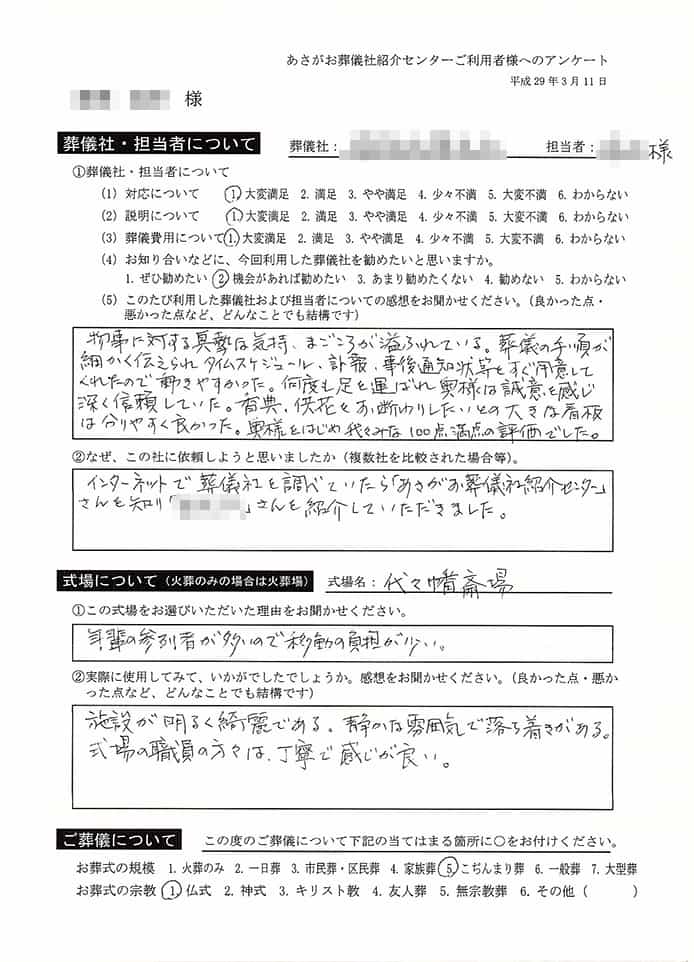 あさがお葬儀社紹介センターご利用者様へのアンケート
平成 29 年 3 月 11 日
様
葬儀社・担当者について 葬儀社： 担当者： 様
①葬儀社・担当者について
(1) 対応について 1. 大変満足 2. 満足 3. やや満足 4. 少々不満 5. 大変不満 6. わからない
(2) 説明について 1. 大変満足 2. 満足 3. やや満足 4. 少々不満 5. 大変不満 6. わからない
(3) 葬儀費用について 1. 大変満足 2. 満足 3. やや満足 4. 少々不満 5. 大変不満 6. わからない
(4) お知り合いなどに、今回利用した葬儀社を勧めたいと思いますか。
1. ぜひ勧めたい 2 機会があれば勧めたい 3. あまり勧めたくない 4. 勧めない 5. わからない
(5) このたび利用した葬儀社および担当者についての感想をお聞かせください。（良かった点・
悪かった点など、どんなことでも結構です）
物事に対する真摯な気持、まごころが溢ふれている。葬儀の手順が
細かく伝えられタイムスケジュール、訃報、事後通知状等もすぐ用意して
くれたので動きやすかった。何度も足を運ばれ奥様は誠意を感じ
深く信頼していた。香典、供花をお断わりしたいとの大きな看板
は分りやすく良かった。奥様をはじめ我々みな100点満点の評価でした。
②なぜ、この社に依頼しようと思いましたか（複数社を比較された場合等）。
インターネットで葬儀社を調べていたら「あさがお葬儀社紹介センター」
さんを知り「 」さんを紹介していただきました。
式場について（火葬のみの場合は火葬場） 式場名： 代々幡斎場
①この式場をお選びいただいた理由をお聞かせください。
年輩の参列者が多いので移動の負担が少い。
②実際に使用してみて、いかがでしたでしょうか。感想をお聞かせください。（良かった点・悪か
った点など、どんなことでも結構です）
施設が明るく綺麗である。静かな雰囲気で落ち着きがある。
式場の職員の方々は、丁寧で感じが良い。
ご葬儀について この度のご葬儀について下記の当てはまる箇所に○をお付けください。
お葬式の規模 1. 火葬のみ 2. 一日葬 3. 市民葬・区民葬 4. 家族葬 5. こぢんまり葬 6. 一般葬 7. 大型葬
お葬式の宗教 1. 仏式 2. 神式 3. キリスト教 4. 友人葬 5. 無宗教葬 6. その他（ ）